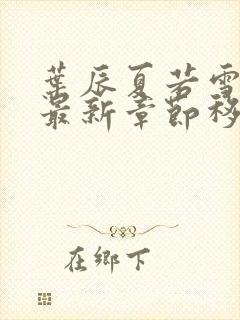 葉辰夏若雪
最新章節移
在鄉下